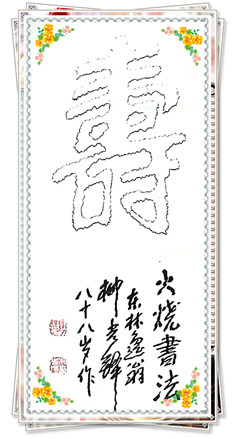 壽
火烧書法
东林逸翁
柳
八十八岁作